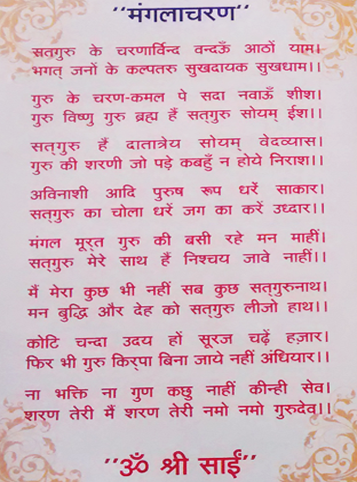 "मंगलाचरण"
सतगुरु के चरणार्विन्द वन्दऊँ आठों याम।
भगत् जनों के कल्पतरु सुखदायक सुखधाम।।
गुरु के चरण-कमल पे सदा नवाऊँ शीश।
गुरु विष्णु गुरु ब्रह्म हैं सत्गुरु सोयम् ईश।।
सत्गुरु हैं दातात्रेय सोयम् वेदव्यास।
गुरु की शरणी जो पड़े कबहुँ न होये निराश।।
अविनाशी आदि पुरुष रूप धरें साकार।
सत्गुरु का चोला धरें जग का करें उध्दार।।
मंगल मूर्त गुरु की बसी रहे मन माहीं।
सत्गुरु मेरे साथ हैं निश्चय जावे नाहीं।।
मैं मेरा कुछ भी नहीं सब कुछ सत्गुरुनाथ।
मन बुद्धि और देह को सत्गुरु लीजो हाथ।।
कोटि चन्दा उदय हों सूरज चढ़ें हज़ार।
फिर भी गुरु किर्पा बिना जाये नहीं अंधियार।।
ना भक्ति ना गुण कछु नाहीं कीन्ही सेव।
शरण तेरी मैं शरण तेरी नमो नमो गुरुदेव।।
"ॐ श्री साईं"